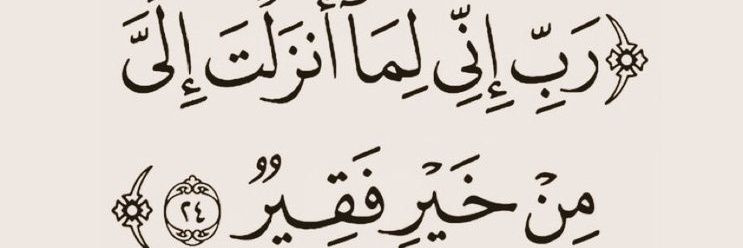 ﴿رَبِّ إِنِّي لِمَآ أَنزَلْتَ إِلَيَّ
مِنْ خَيْرٍ فَقِيرٌ ٢٤﴾